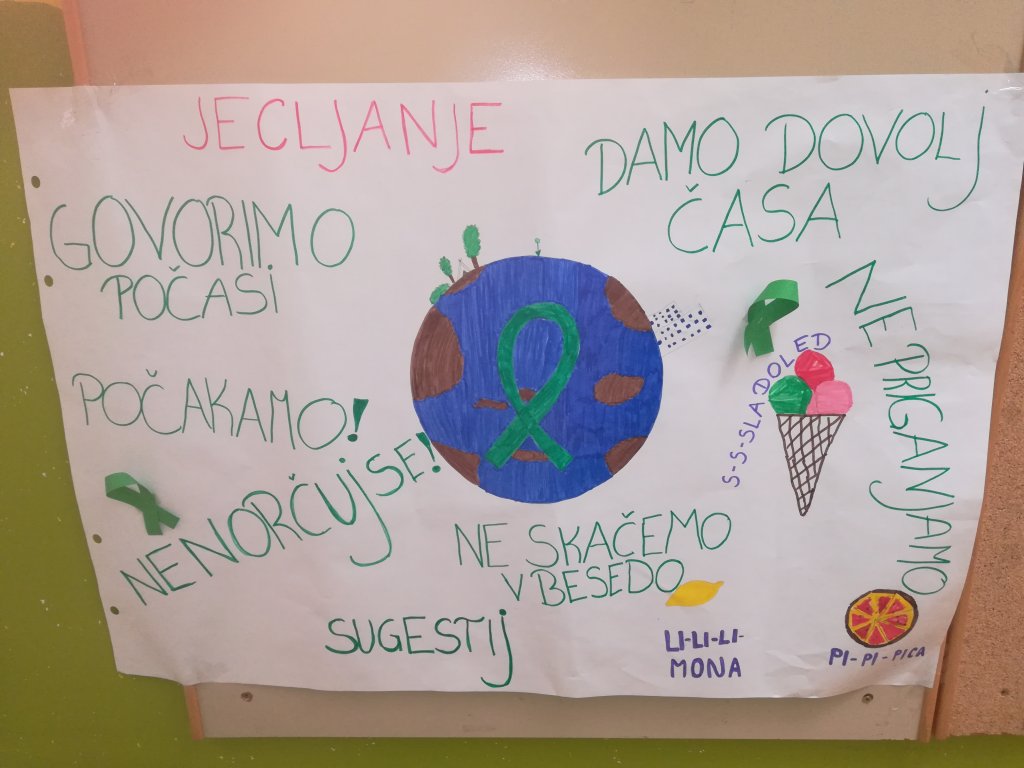 JECLJANJE
DAMO DOVOLJ
ČASA
GOVORIMO
POČASI
POČAKAMO!
NENORČUJSE!
NE PRIGANJAMO
S-S-SLADOLED
NE SKAČEMO
V BESEDO
SUGESTIJ
LI-LI-LI-
MONA
PI-PI-PICA